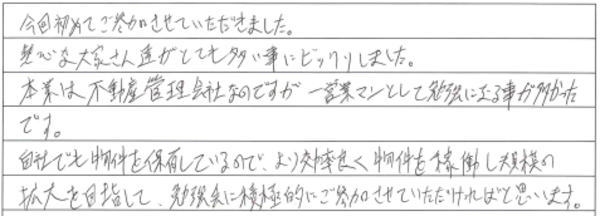 今回初めてご参加させていただきました。
熱心な大家さん達がとても多い事にビックリしました。
本業は不動産管理会社なのですが一営業マンとして勉強になる事が多かった
です。
自社でも物件を保有しているので、より効率良く物件を稼働し規模の
拡大を目指して、勉強会に積極的にご参加させていただければと思います。